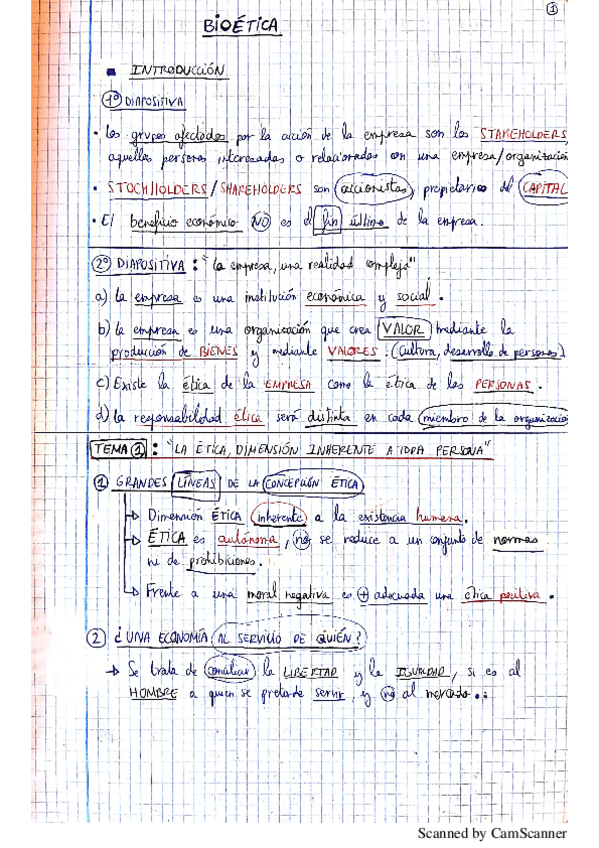 ①
BIOÉTICA
▪ INTRODUCCIÓN
1º DIAPOSITIVA
• Los grupos afectados por la acción de la empresa son los STAKEHOLDERS,
aquellas personas interesadas o relacionadas con una empresa/organización
• STOCKHOLDERS/SHAREHOLDERS son accionistas, propietarios del CAPITAL
• El beneficio económico NO es el fin último de la empresa.
2º DIAPOSITIVA: "La empresa, una realidad compleja"
a) La empresa es una institución económica y social.
b) La empresa es una organización que crea VALOR mediante la
producción de BIENES y mediante VALORES: (Cultura, desarrollo de personas)
c) Existe la ética de la EMPRESA como la ética de las PERSONAS.
d) La responsabilidad ética será distinta en cada miembro de la organización
TEMA ①: "LA ÉTICA, DIMENSIÓN INHERENTE A TODA PERSONA"
① GRANDES LÍNEAS DE LA CONCEPCIÓN ÉTICA
→ Dimensión ÉTICA inherente a la existencia humana.
→ ÉTICA es autónoma, no se reduce a un conjunto de normas
ni de prohibiciones.
→ Frente a una moral negativa es + adecuada una ética positiva.
② ¿UNA ECONOMÍA AL SERVICIO DE QUIÉN?
→ Se trata de conciliar la LIBERTAD y la IGUALDAD, si es al
HOMBRE a quien se pretende servir, y no al mercado.
Scanned by CamScanner